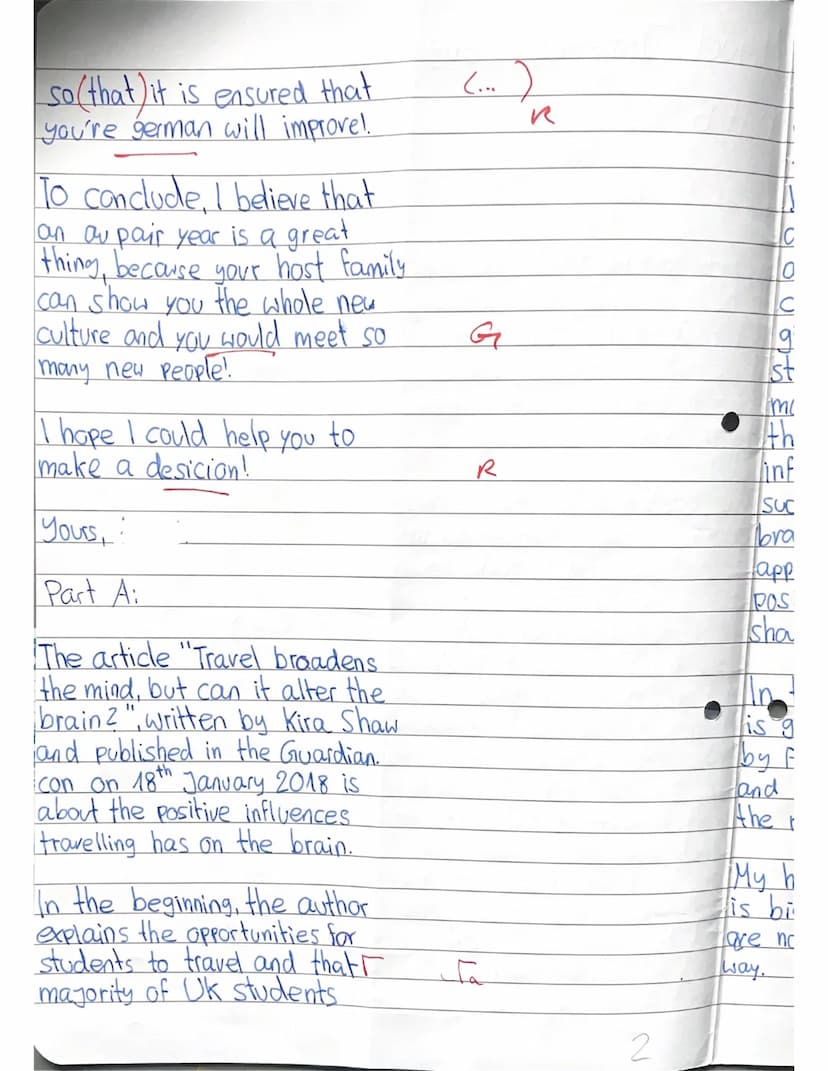 so(that)it is ensured that (... )
R
you're german will improve!
To conclude, I believe that
an au pair year is a great
thing, because your host family
can show you the whole new
culture and you would meet so G
many new people!
I hope I could help you to
make a desicion! R
Yours,
Part A:
The article "Travel broadens
the mind, but can it alter the
brain?", written by Kira Shaw
and published in the Guardian.
con on 18th January 2018 is
about the positive influences
travelling has on the brain.
In the beginning, the author
explains the opportunities for
students to travel and that Γ Γa
majority of UK students
2
g
st
th
inf
suc
bra
app
pos
sha
In
is g
by F
and
the
My h
is bi
are no
way.